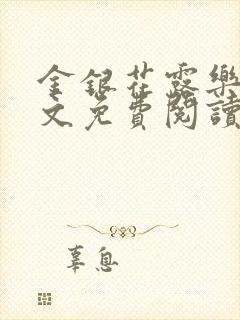 金銀花露樂
文免費閱讀
辜息